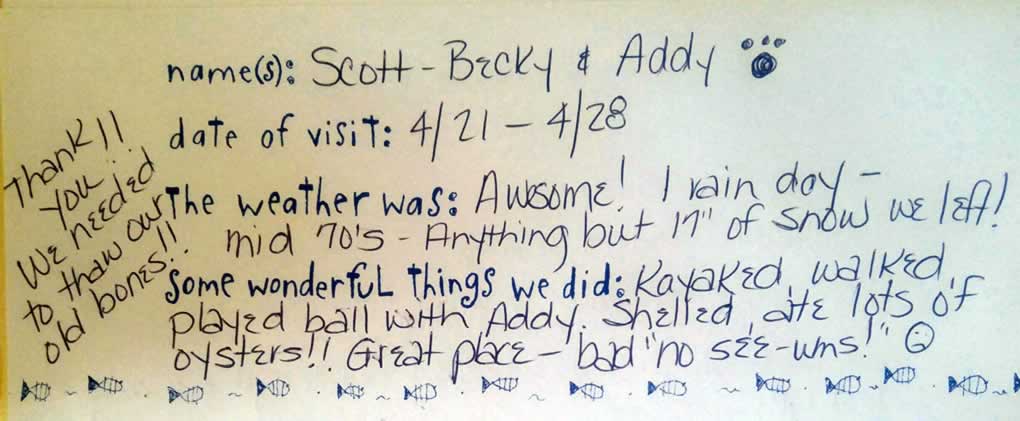 name(s): Scott - Becky & Addy
date of visit: 4/21 - 4/28
The weather was: Awsome! 1 rain day -
mid 70's - Anything but 17" of snow we left!
some wonderful things we did: Kayaked, walked,
played ball with Addy. Shelled, ate lots of
oysters!! Great place - bad "no see-ums!"
Thank
you!!
We needed
to thaw our
old bones!!